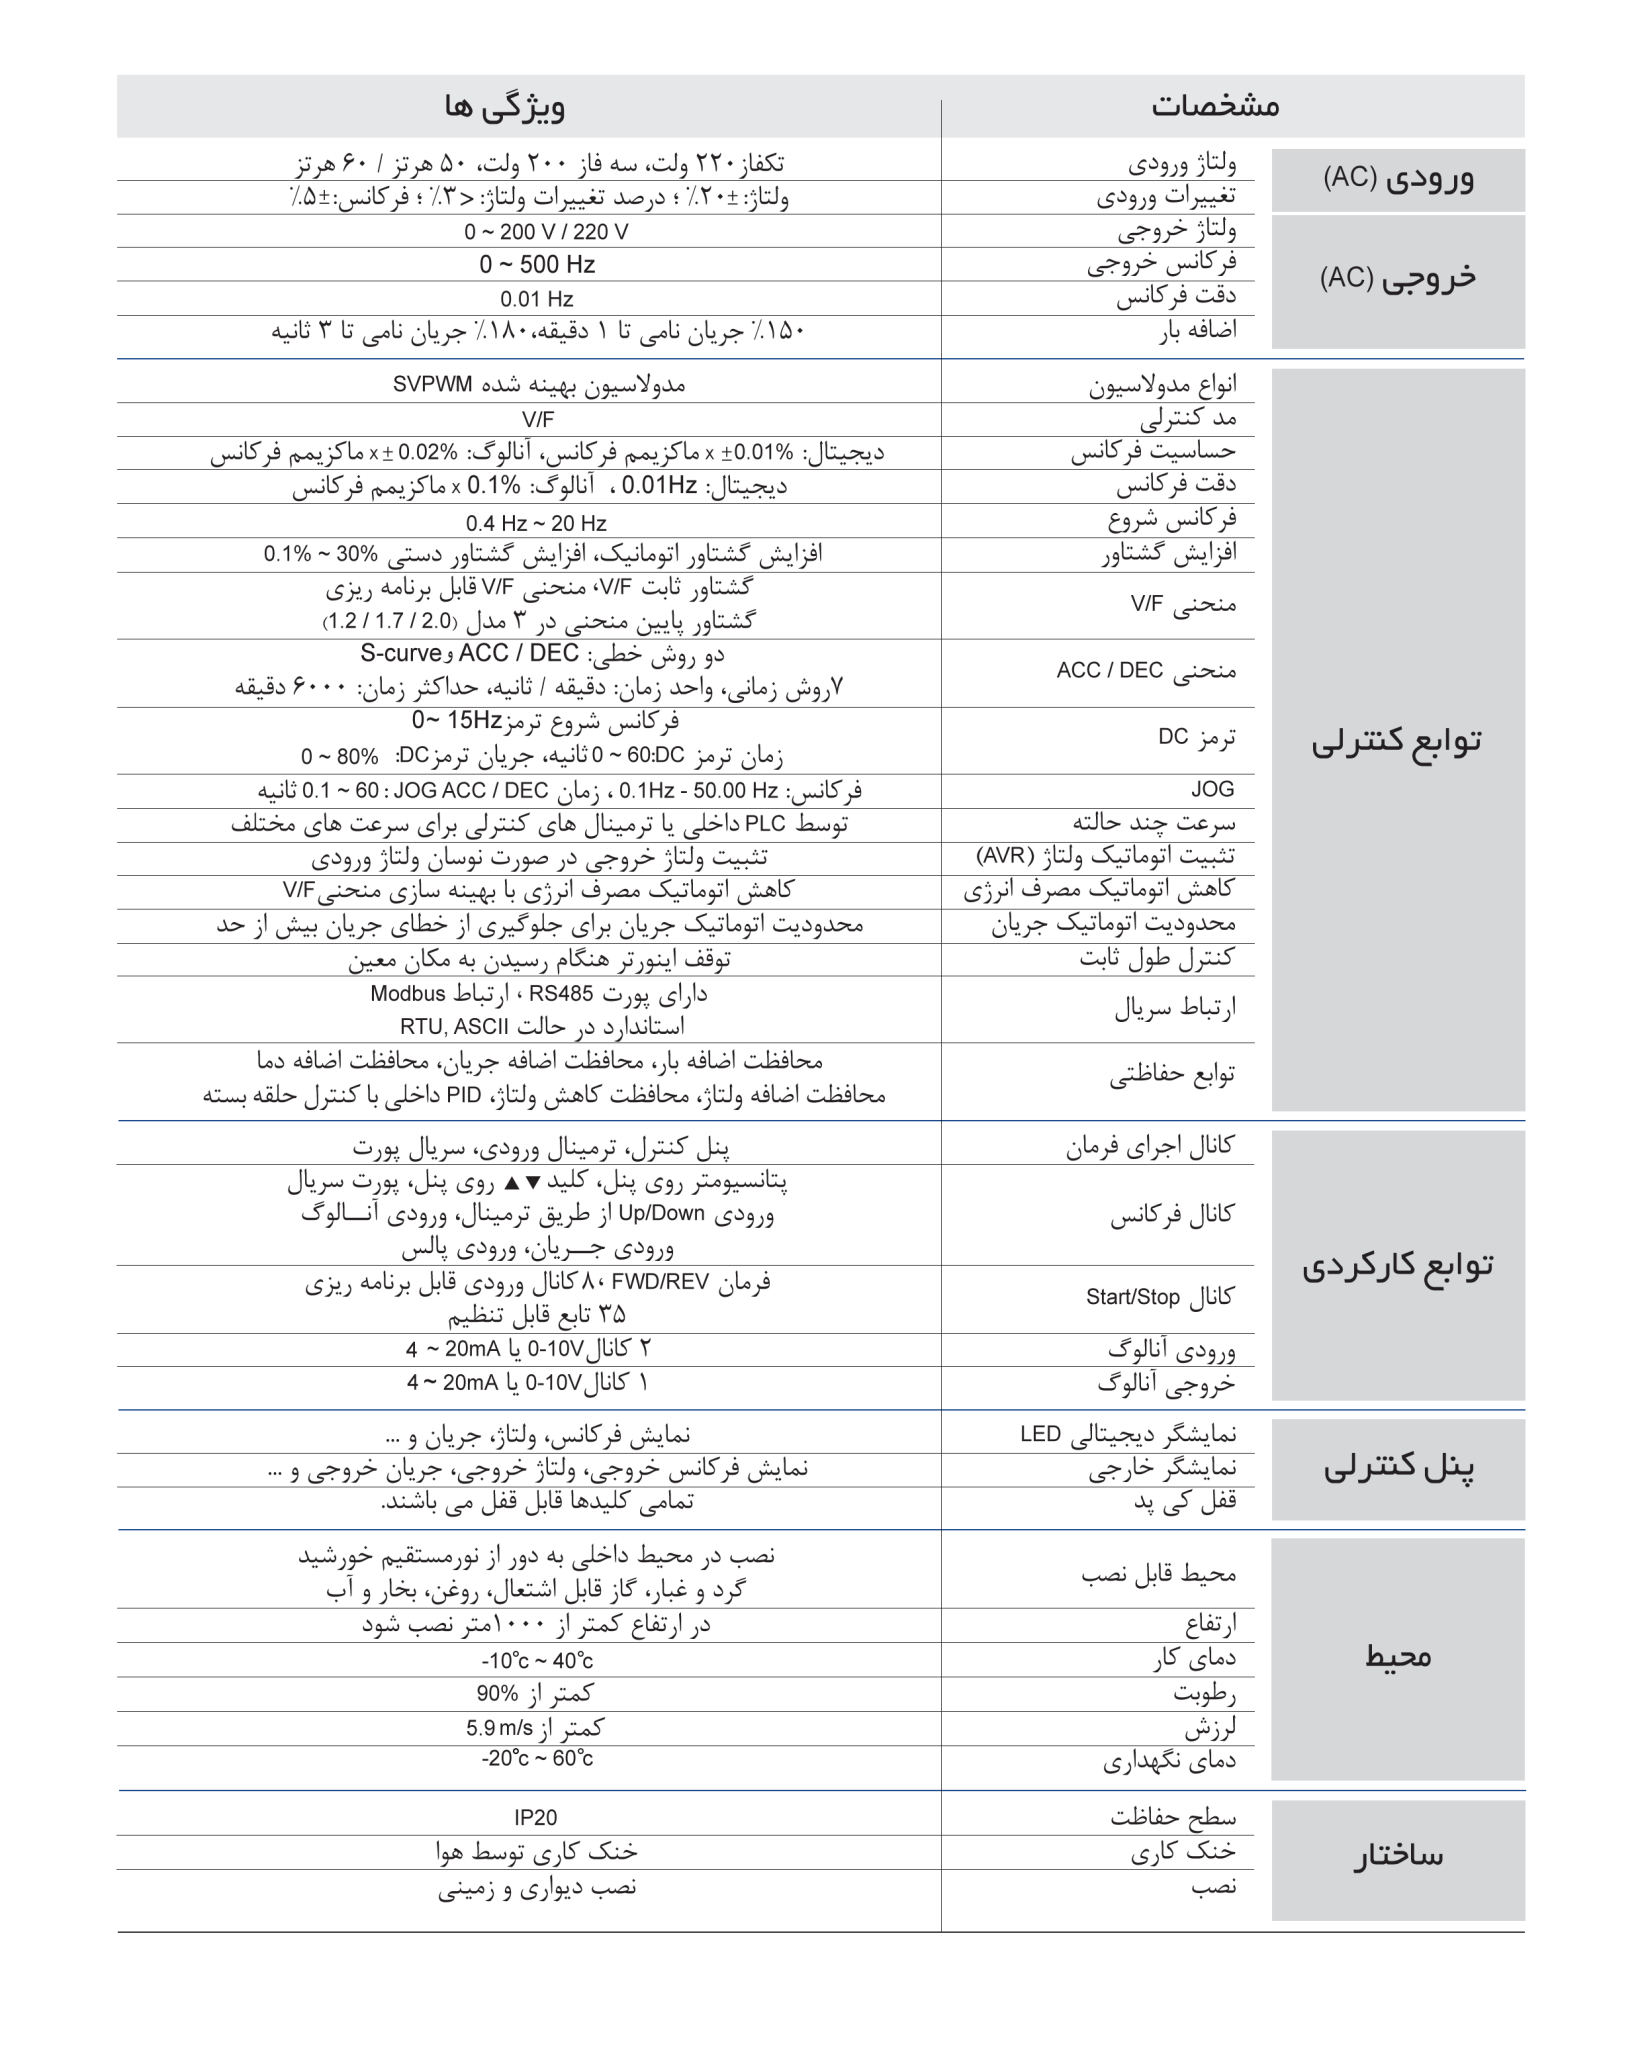 مشخصات
ویژگی ها
ورودی (AC)
ولتاژ ورودی
تکفاز۲۲۰ ولت، سه فاز ۲۰۰ ولت، ۵۰ هرتز / ۶۰ هرتز
تغییرات ورودی
ولتاژ: ±۲۰٪ ؛ درصد تغییرات ولتاژ: <۳٪ ؛ فرکانس:±۵٪
خروجی (AC)
ولتاژ خروجی
0 ~ 200 V / 220 V
فرکانس خروجی
0 ~ 500 Hz
دقت فرکانس
0.01 Hz
اضافه بار
۱۵۰٪ جریان نامی تا ۱ دقیقه،۱۸۰٪ جریان نامی تا ۳ ثانیه
توابع کنترلی
انواع مدولاسیون
مدولاسیون بهینه شده SVPWM
مد کنترلی
V/F
حساسیت فرکانس
دیجیتال: ±0.01% x ماکزیمم فرکانس، آنالوگ: ±0.02% x ماکزیمم فرکانس
دقت فرکانس
دیجیتال: 0.01Hz ، آنالوگ: 0.1% x ماکزیمم فرکانس
فرکانس شروع
0.4 Hz ~ 20 Hz
افزایش گشتاور
افزایش گشتاور اتومانیک، افزایش گشتاور دستی 0.1% ~ 30%
منحنی V/F
گشتاور ثابت V/F، منحنی V/F قابل برنامه ریزی
گشتاور پایین منحنی در ۳ مدل (1.2 / 1.7 / 2.0)
منحنی ACC / DEC
دو روش خطی: ACC / DEC وS-curve
۷روش زمانی، واحد زمان: دقیقه / ثانیه، حداکثر زمان: ۶۰۰۰ دقیقه
ترمز DC
فرکانس شروع ترمز0~ 15Hz
زمان ترمز DC:‏ 0 ~ 60 ثانیه، جریان ترمزDC:‏ 0 ~ 80%
JOG
فرکانس: 0.1Hz - 50.00 Hz ، زمان JOG ACC / DEC :‏ 0.1 ~ 60 ثانیه
سرعت چند حالته
توسط PLC داخلی یا ترمینال های کنترلی برای سرعت های مختلف
تثبیت اتوماتیک ولتاژ (AVR)
تثبیت ولتاژ خروجی در صورت نوسان ولتاژ ورودی
کاهش اتوماتیک مصرف انرژی
کاهش اتوماتیک مصرف انرژی با بهینه سازی منحنیV/F
محدودیت اتوماتیک جریان
محدودیت اتوماتیک جریان برای جلوگیری از خطای جریان بیش از حد
کنترل طول ثابت
توقف اینورتر هنگام رسیدن به مکان معین
ارتباط سریال
دارای پورت RS485 ، ارتباط Modbus
استاندارد در حالت RTU, ASCII
توابع حفاظتی
محافظت اضافه بار، محافظت اضافه جریان، محافظت اضافه دما
محافظت اضافه ولتاژ، محافظت کاهش ولتاژ، PID داخلی با کنترل حلقه بسته
توابع کارکردی
کانال اجرای فرمان
پنل کنترل، ترمینال ورودی، سریال پورت
کانال فرکانس
پتانسیومتر روی پنل، کلید ▼▲ روی پنل، پورت سریال
ورودی Up/Down از طریق ترمینال، ورودی آنـــالوگ
ورودی جـــریان، ورودی پالس
کانال Start/Stop
فرمان FWD/REV ،۸کانال ورودی قابل برنامه ریزی
۳۵ تابع قابل تنظیم
ورودی آنالوگ
۲ کانال0-10V یا 4 ~ 20mA
خروجی آنالوگ
۱ کانال0-10V یا 4 ~ 20mA
پنل کنترلی
نمایشگر دیجیتالی LED
نمایش فرکانس، ولتاژ، جریان و ...
نمایشگر خارجی
نمایش فرکانس خروجی، ولتاژ خروجی، جریان خروجی و ...
قفل کی پد
تمامی کلیدها قابل قفل می باشند.
محیط
محیط قابل نصب
نصب در محیط داخلی به دور از نورمستقیم خورشید
گرد و غبار، گاز قابل اشتعال، روغن، بخار و آب
ارتفاع
در ارتفاع کمتر از ۱۰۰۰متر نصب شود
دمای کار
-10°c ~ 40°c
رطوبت
کمتر از 90%
لرزش
کمتر از 5.9 m/s
دمای نگهداری
-20°c ~ 60°c
ساختار
سطح حفاظت
IP20
خنک کاری
خنک کاری توسط هوا
نصب
نصب دیواری و زمینی